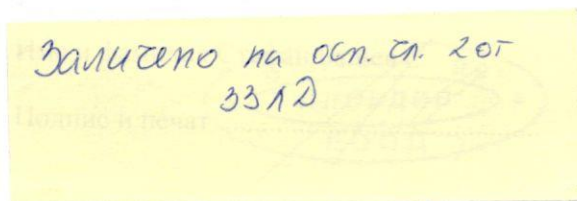 Заличено на осн. чл. 2 от
ЗЗЛД
Подпис и печат